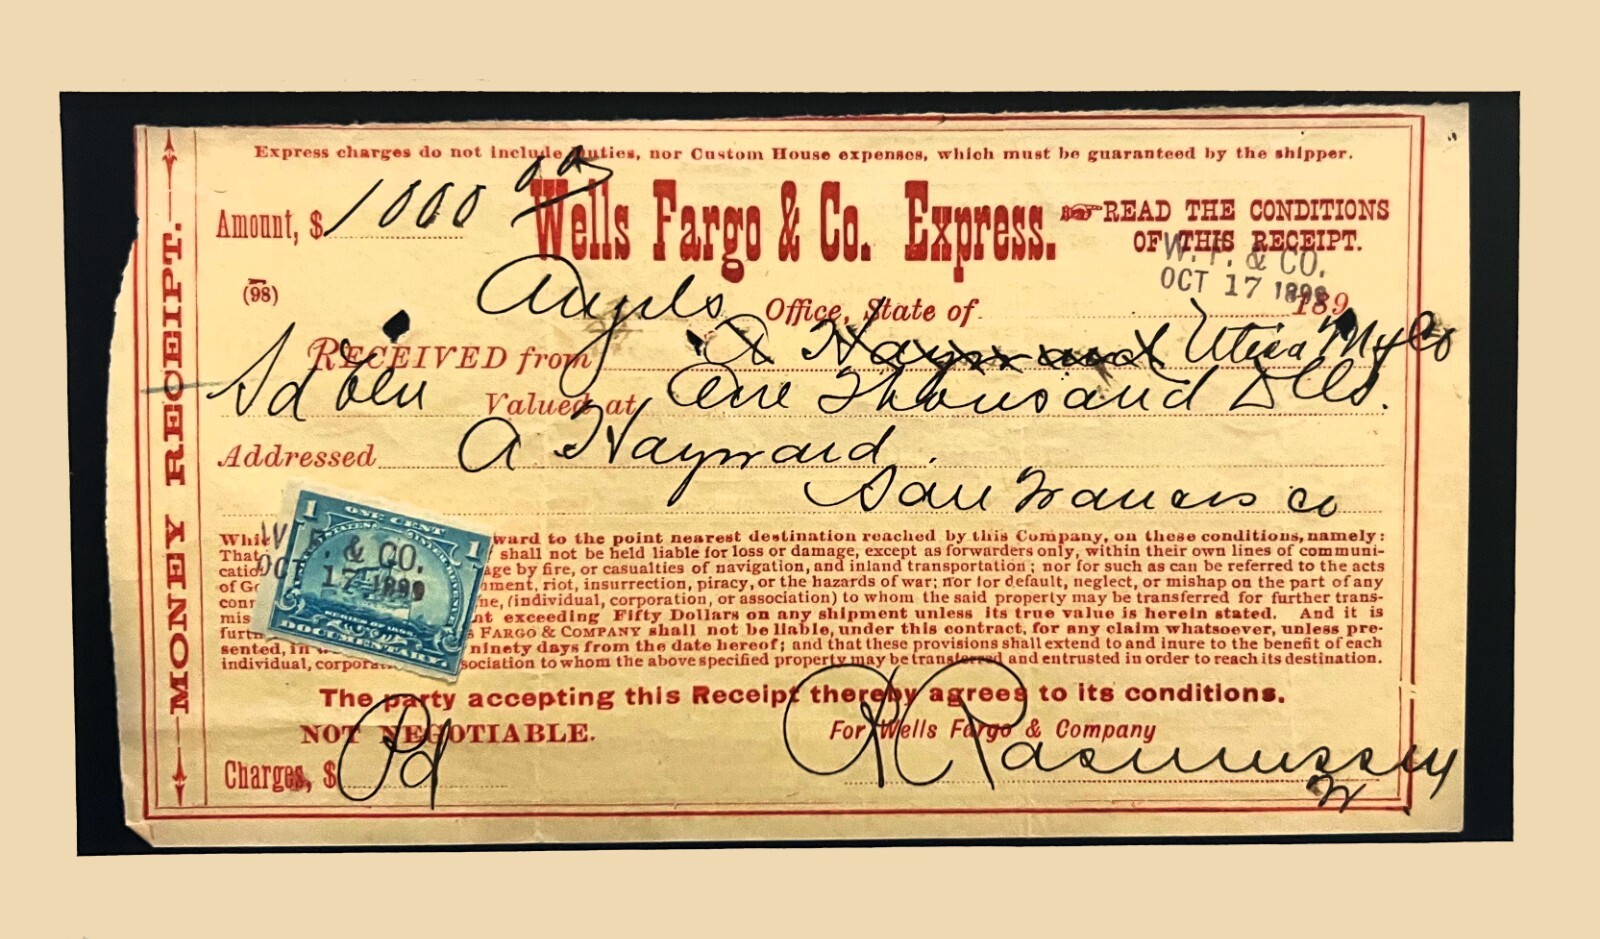 Express charges do not include duties, nor Custom House expenses, which must be guaranteed by the shipper.
Amount, $ 1000 00
Wells Fargo & Co. Express.
READ THE CONDITIONS
OF THIS RECEIPT.
W. F. & CO.
OCT 17 1899
(98)
Angels Office, State of 189
RECEIVED from A Hayward Utica My Co
Sd Valued at One Thousand Dlls.
Addressed A Hayward
San Francisco
MONEY RECEIPT.
Whi ward to the point nearest destination reached by this Company, on these conditions, namely:
That shall not be held liable for loss or damage, except as forwarders only, within their own lines of communi-
catio age by fire, or casualties of navigation, and inland transportation; nor for such as can be referred to the acts
of G nment, riot, insurrection, piracy, or the hazards of war; nor for default, neglect, or mishap on the part of any
conn ne, (individual, corporation, or association) to whom the said property may be transferred for further trans-
mis nt exceeding Fifty Dollars on any shipment unless its true value is herein stated. And it is
furth s FARGO & COMPANY shall not be liable, under this contract, for any claim whatsoever, unless pre-
sented, in ninety days from the date hereof; and that these provisions shall extend to and inure to the benefit of each
individual, corporat sociation to whom the above specified property may be transferred and entrusted in order to reach its destination.
1 ONE CENT 1
W. F. & CO.
OCT 17 1899
SERIES OF 1898.
DOCUMENTARY.
The party accepting this Receipt thereby agrees to its conditions.
NOT NEGOTIABLE.
For Wells Fargo & Company
Charges, $ Pd